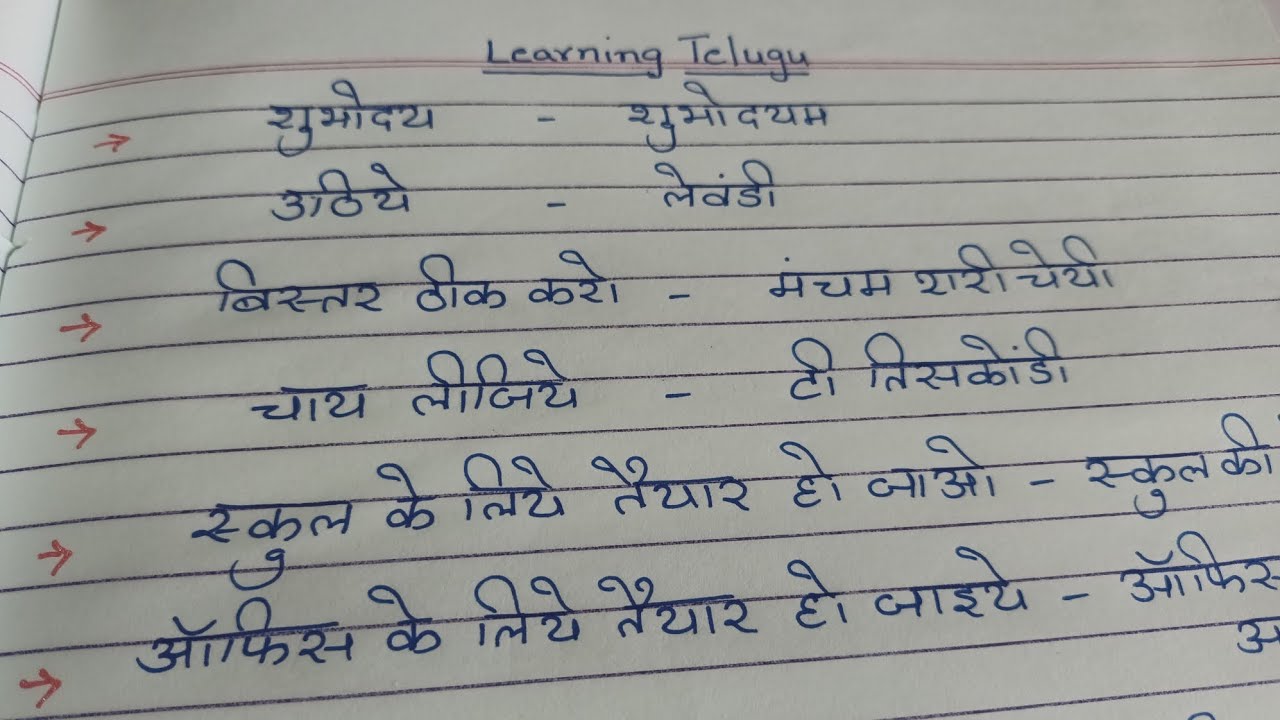 Learning Telugu
→ शुभोदय - शुभोदयम
→ उठिये - लेवंडी
→ बिस्तर ठीक करो - मंचम शरी चेयी
→ चाय लीजिये - टी तिसकोंडी
→ स्कुल के लिये तैयार हो जाओ - स्कुल की
→ ऑफिस के लिये तैयार हो जाइये - ऑफिस